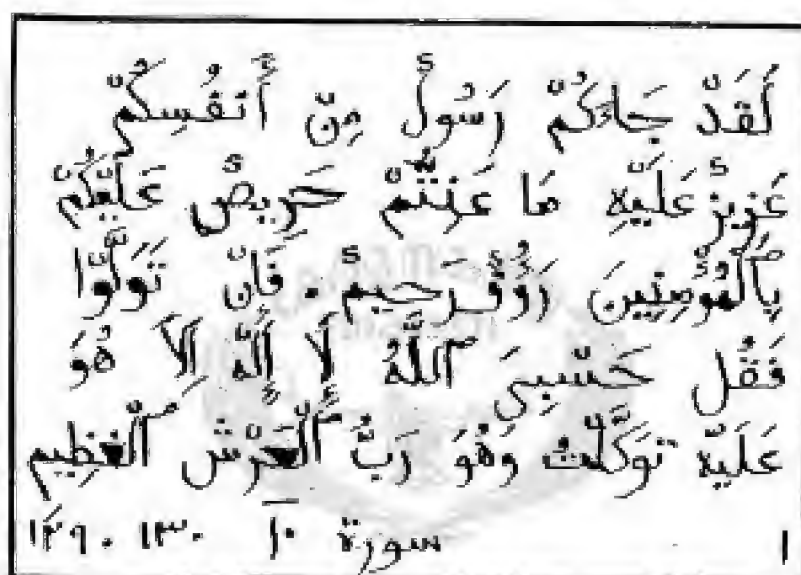 لَقَدْ جَاءَكُمْ رَسُولٌ مِنْ أَنْفُسِكُمْ
عَزِيزٌ عَلَيْهِ مَا عَنِتُّمْ حَرِيصٌ عَلَيْكُمْ
بِٱلْمُؤْمِنِينَ رَؤُفٌ رَحِيمٌ . فَإِنْ تَوَلَّوْا
فَقُل حَسْبِيَ ٱللَّهُ لَا إِلَٰهَ إِلَّا هُوَ
عَلَيْهِ تَوَكَّلْتُ وَهُوَ رَبُّ ٱلْعَرْشِ ٱلْعَظِيمِ
سورة ١٠ ١٣٠ . ١٢٩
١